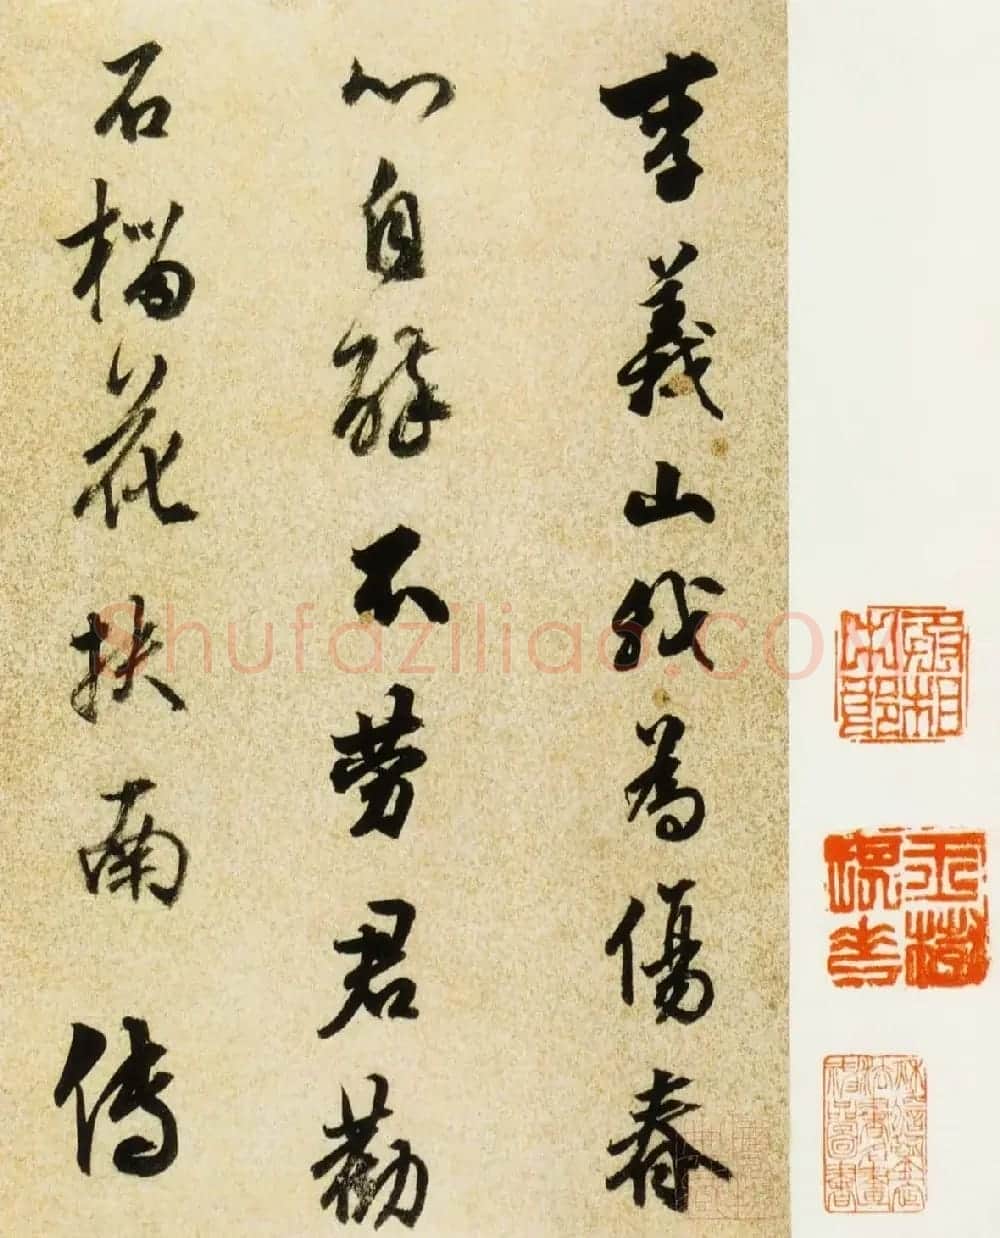 李義山我為傷春
心自醉不勞君勸
石榴花扶南傳
Shufaziliao.com